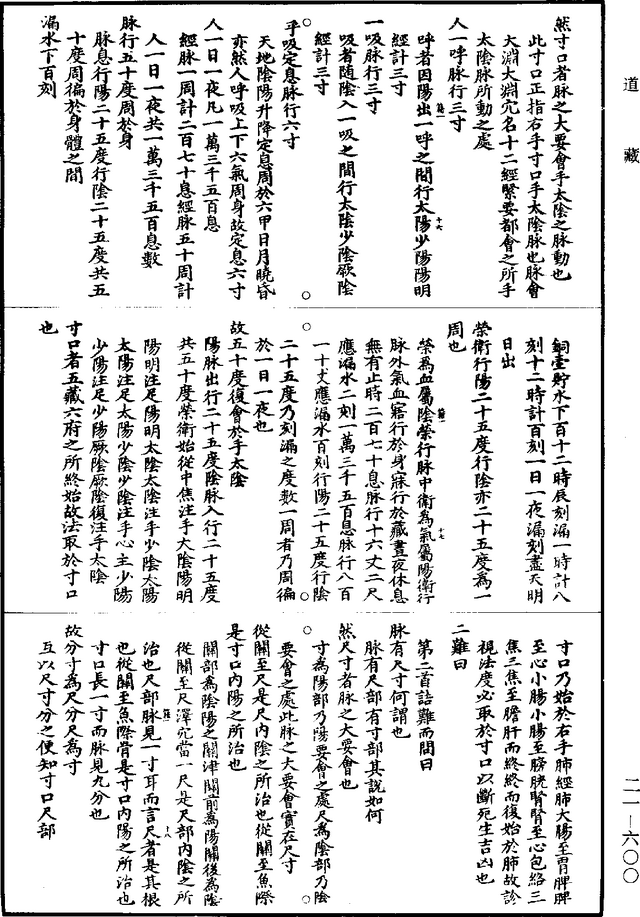 道藏
然寸口者脉之大要會手太陰之脉動也
此寸口正指右手寸口手太陰脉也脉會
大淵大淵宂名十二經緊要都會之所手
太陰脉所動之處
人一呼脉行三寸
呼者因陽出一呼之間行太陽少陽陽明
經計三寸
一吸脉行三寸
吸者隨陰入一吸之間行太陰少陰厥陰
經計三寸
呼吸定息脉行六寸
天地陰陽升降定息周於六甲日月曉昏
亦然人呼吸上下六氣周身故定息六寸
人一日一夜凡一萬三千五百息
經脉一周計二百七十息經脉五十周計
人一日一夜共一萬三千五百息數
脉行五十度周於身
脉息行陽二十五度行陰二十五度共五
十度周徧於身體之間
漏水下百刻
銅壺貯水下百十二時辰刻漏一時計八
刻十二時計百刻一日一夜漏刻盡天明
日出
榮衛行陽二十五度行陰亦二十五度為一
周也
榮為血屬陰榮行脉中衛為氣屬陽衛行
脉外氣血寤行於身寐行於藏晝夜休息
無有止時二百七十息脉行十六丈二尺
應漏水二刻一萬三千五百息脉行八百
一十丈應漏水百刻行陽二十五度行陰
二十五度乃刻漏之度數一周者乃周徧
於一日一夜也
故五十度復會於手太陰
陽脉出行二十五度陰脉入行二十五度
共五十度榮衛始從中焦注手大陰陽明
陽明注足陽明太陰太陰注手少陰太陽
太陽注足太陽少陰少陰注手心主少陽
少陽注足少陽厥陰厥陰復注手太陰
寸口者五藏六府之所終始故法取於寸口
也
寸口乃始於右手肺經肺大腸至胃脾脾
至心小腸小腸至膀胱腎腎至心包絡三
焦三焦至膽肝而終終而復始於肺故診
視法度必取於寸口以斷死生吉凶也
二難曰
第二首詰難而問曰
脉有尺寸何謂也
脉有尺部有寸部其說如何
然尺寸者脉之大要會也
寸為陽部乃陽要會之處尺為陰部乃陰
要會之處此脉之大要會實在尺寸
從關至尺是尺內陰之所治也從關至魚際
是寸口內陽之所治也
關部為陰陽之關津關前為陽關後為陰
從關至尺澤宂當一尺是尺部內陰之所
治也尺部脉見一寸耳而言尺者是其根
也從關至魚際骨是寸口內陽之所治也
寸口長一寸而脉見九分也
故分寸為尺分尺為寸
互以尺寸分之便知寸口尺部
二一-六〇〇